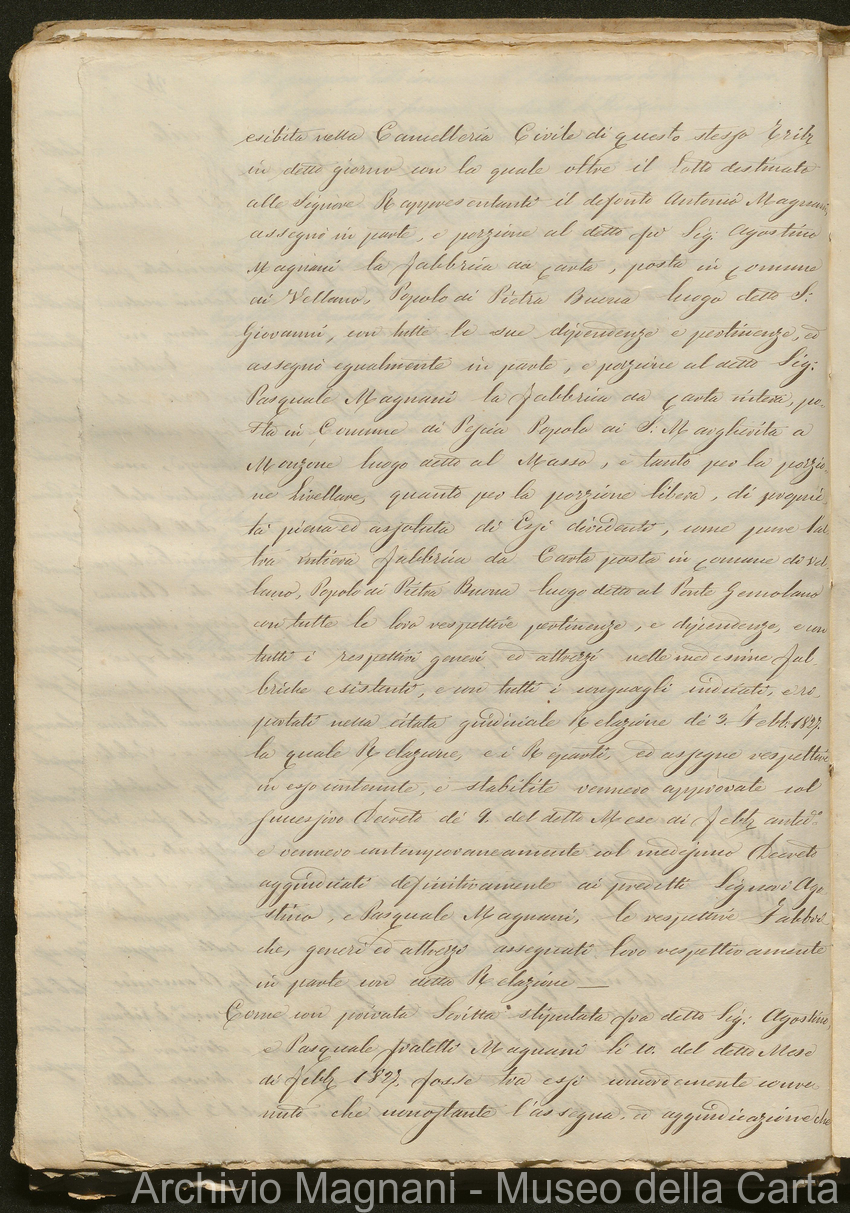 esibita nella Cancelleria Civile di questo stesso Trib.
in detto giorno con la quale oltre il Lotto destinato
alle Signore Rappresentanti il defonto Antonio Magnani,
assegnò in parte, e porzione al detto fù Sig: Agostino
Magnani la fabbrica da Carta, posta in Comune
di Vellano, Popolo di Pietra Buona luogo detto S:
Giovanni, con tutte le sue dipendenze e pertinenze, ed
assegnò egualmente in parte, e porzione al detto Sig:
Pasquale Magnani la fabbrica da Carta intera, po-
sta in Comune di Pescia Popolo di S: Margherita a
Monzone luogo detto al Masso, e tanto per la porzio-
ne Livellare, quanto per la porzione libera, di proprie
tà piena ed assoluta di Essi dividenti, come pure l'al
tra intiera fabbrica da Carta posta in Comune di Vel
lano, Popolo di Pietra Buona luogo detto al Ponte
con tutte le loro respettive pertinenze, e dipendenze, e con
tutti i respettivi generi ed attrezzi nelle medesime Fab
briche esistenti, e con tutti i conguagli indicati, e re-
portati nella citata giudiciale Relazione de 3. Febb: 1827.
la quale Relazione, e i Reparti, ed assegne respettive
in esso contenute, e stabilite vennero approvate col
successivo Decreto de 9. del detto Mese di Febb.
e vennero contemporaneamente col medesimo Decreto
aggiudicati definitivamente ai predetti Signori Ago
stino, e Pasquale Magnani, le respettive Fabbri-
che, generi ed attrezzi assegnati loro respettivamente
in parte con detta Relazione —
Come con privata Scritta stipulata fra detto Sig: Agostino,
e Pasquale fratelli Magnani li 10. del detto Mese
di Febb. 1827. fosse tra essi concordemente conve
nuto che nonostante l'assegna, ed aggiudicazione che
Archivio Magnani - Museo della Carta